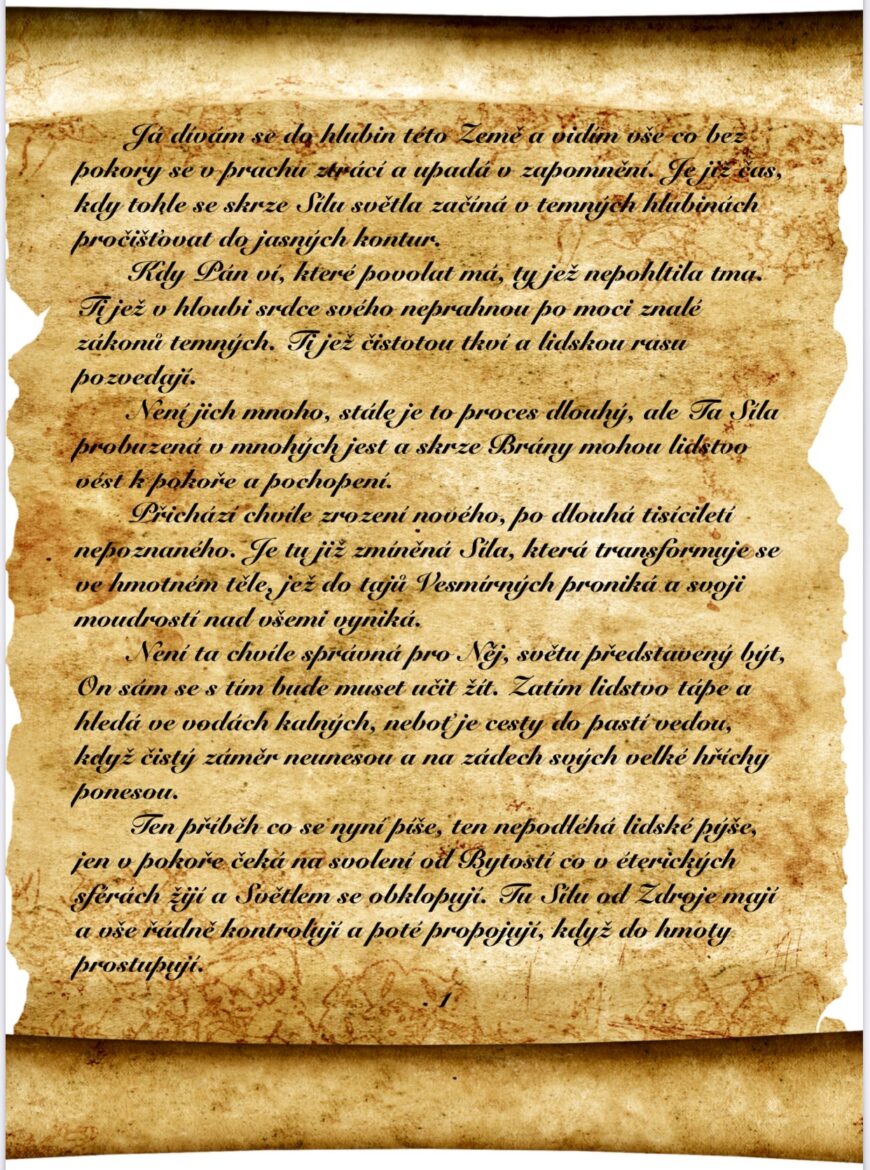 Já dívám se do hlubin této Země a vidím vše co bez
pokory se v prachu ztrácí a upadá v zapomnění. Je již čas,
kdy tohle se skrze Sílu světla začíná v temných hlubinách
pročišťovat do jasných kontur.
Kdy Pán ví, které povolat má, ty jež nepohltila tma.
Ti jež v hloubi srdce svého neprahnou po moci znalé
zákonů temných. Ti jež čistotou tkví a lidskou rasu
pozvedají.
Není jich mnoho, stále je to proces dlouhý, ale Ta Síla
probuzená v mnohých jest a skrze Brány mohou lidstvo
vést k pokoře a pochopení.
Přichází chvíle zrození nového, po dlouhá tisíciletí
nepoznaného. Je tu již zmíněná Síla, která transformuje se
ve hmotném těle, jež do tajů Vesmírných proniká a svojí
moudrostí nad všemi vyniká.
Není ta chvíle správná pro Něj, světu představený být,
On sám se s tím bude muset učit žít. Zatím lidstvo tápe a
hledá ve vodách kalných, neboť je cesty do pastí vedou,
když čistý záměr neunesou a na zádech svých velké hříchy
ponesou.
Ten příběh co se nyní píše, ten nepodléhá lidské pýše,
jen v pokoře čeká na svolení od Bytostí co v éterických
sférách žijí a Světlem se obklopují. Tu Sílu od Zdroje mají
a vše řádně kontrolují a poté propojují, když do hmoty
prostupují.
. 1